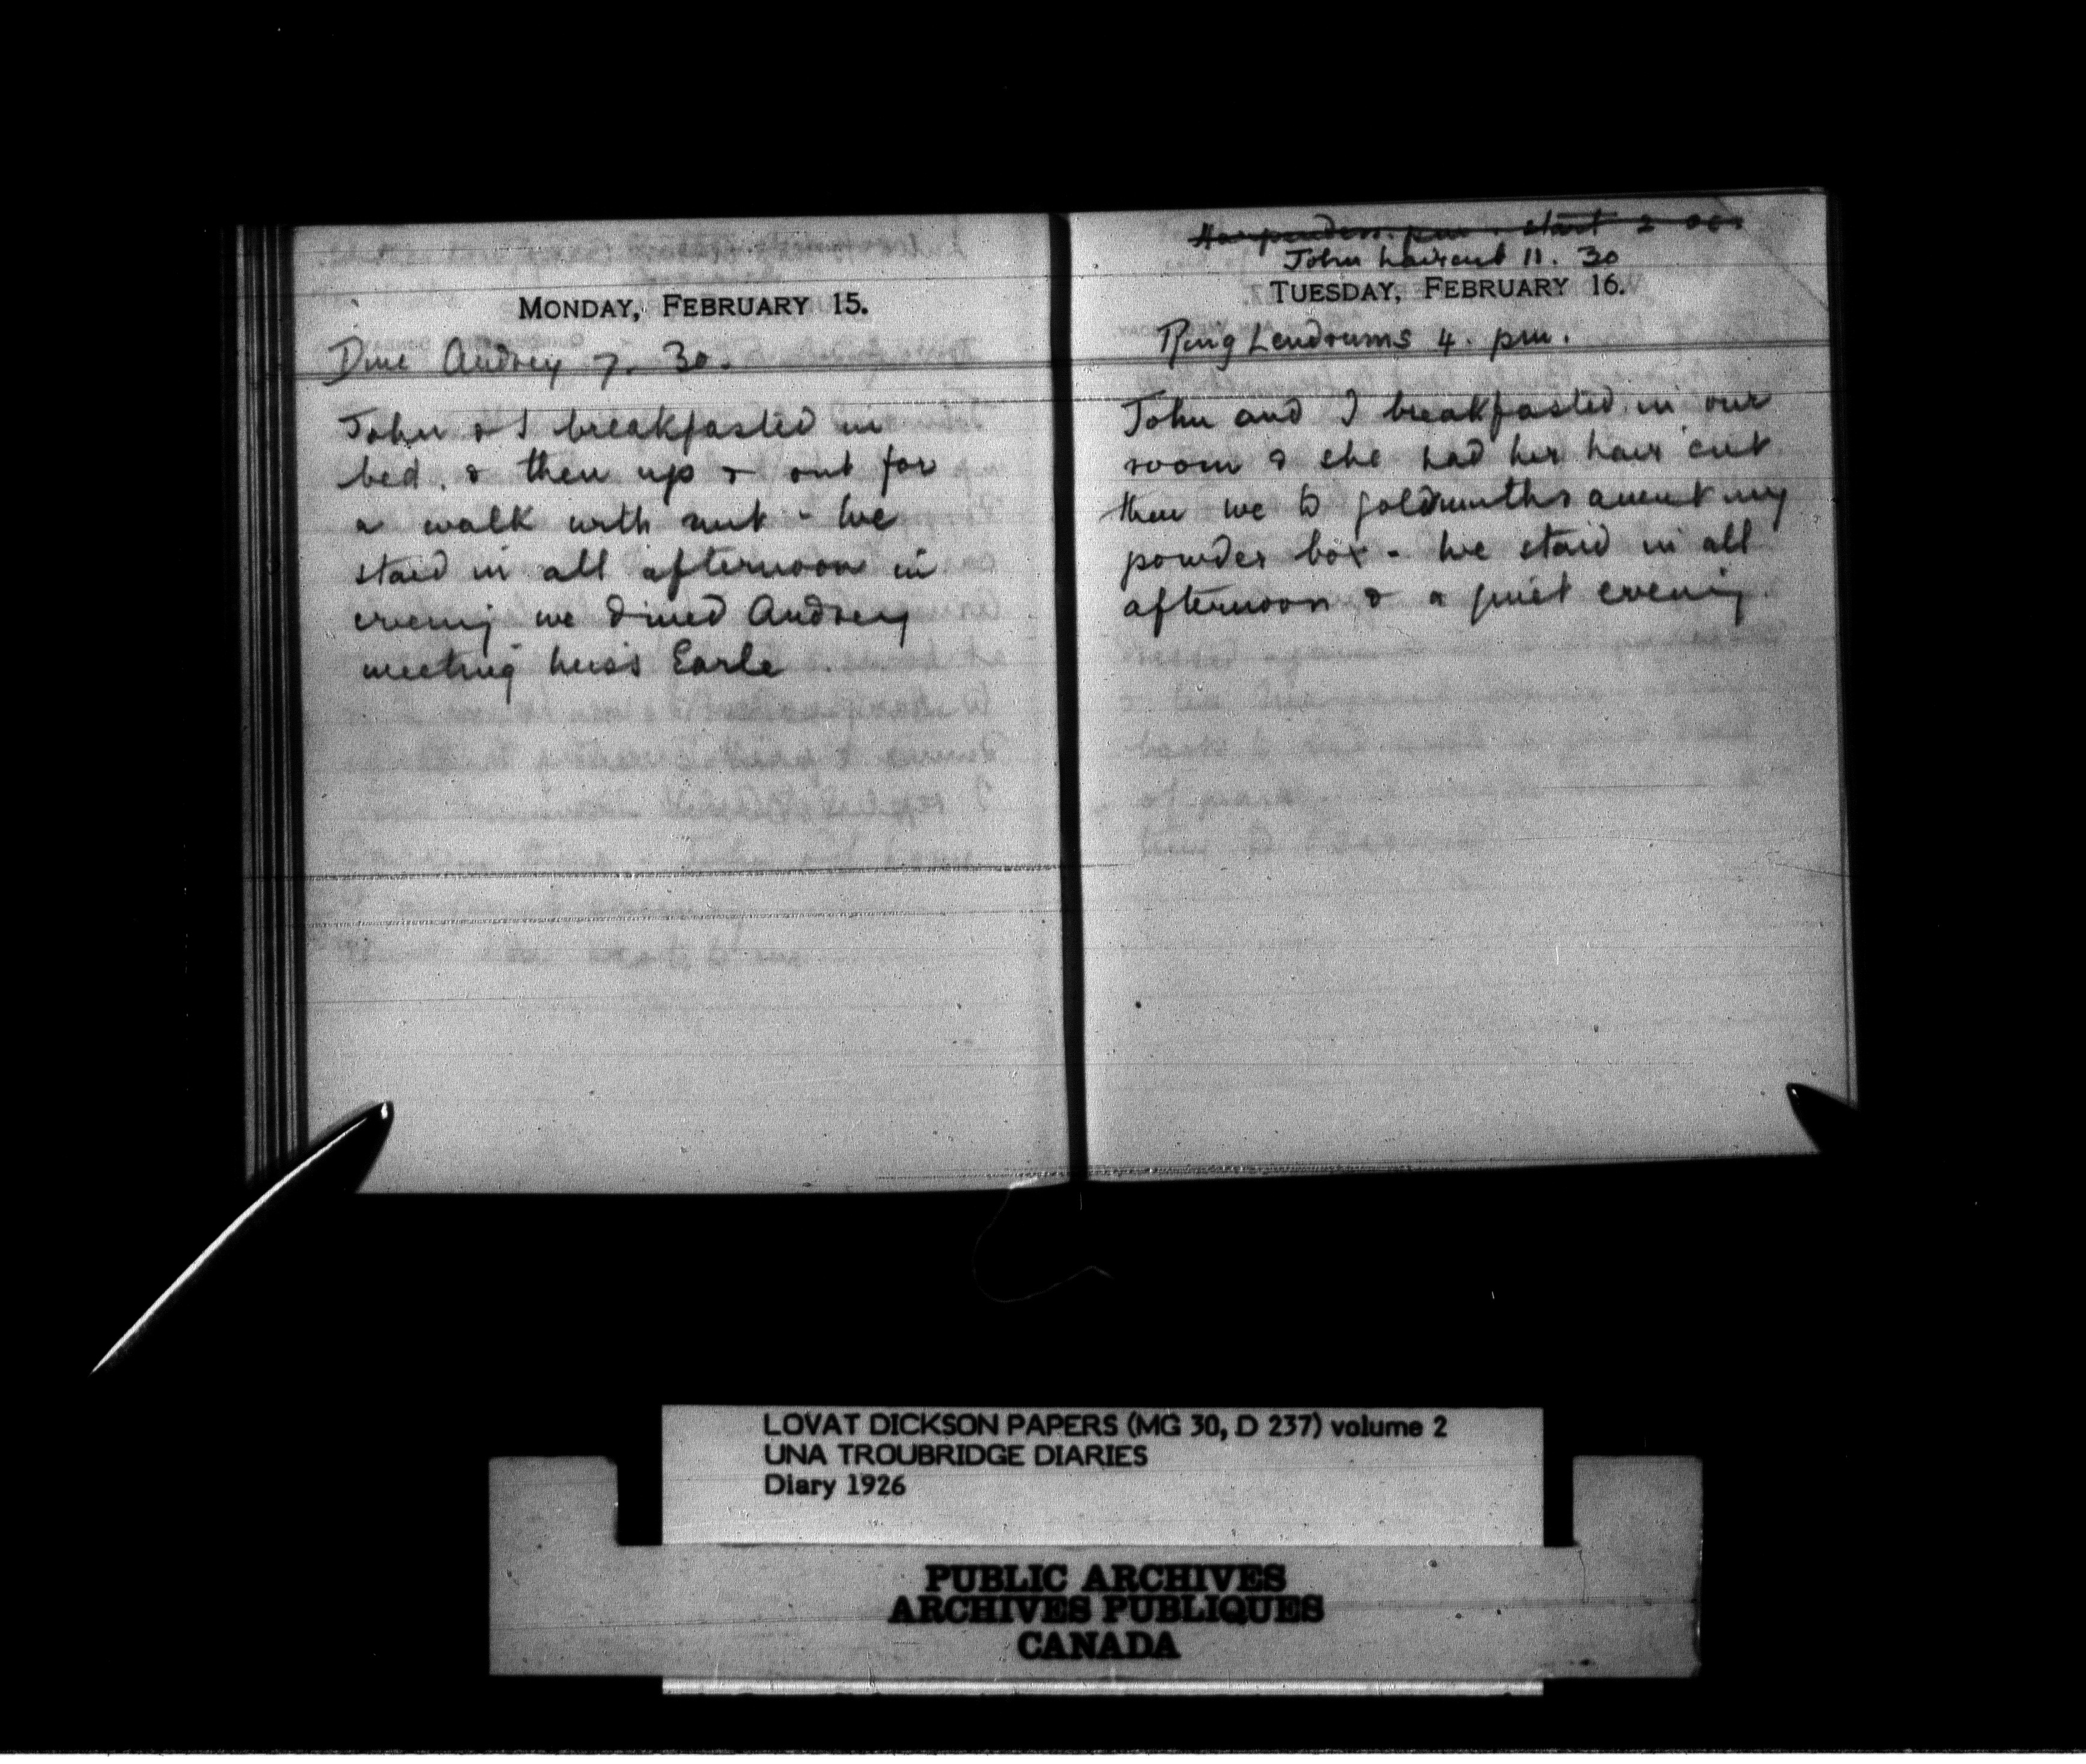 MONDAY, FEBRUARY 15.
Dine Audrey 7. 30.
John & I breakfasted in
bed. & then up & out for
a walk with mitt - We
staid in all afternoon in
evening we dined Audrey
meeting Miss Earle
start 2 00.
John haircut 11. 30
TUESDAY, FEBRUARY 16.
Ring Lendrums 4. pm.
John and I breakfasted in our
room & she had her hair cut
then we to goldsmiths anent my
powder box - We staid in all
afternoon & a quiet evening.
LOVAT DICKSON PAPERS (MG 30, D 237) volume 2
UNA TROUBRIDGE DIARIES
Diary 1926
PUBLIC ARCHIVES
ARCHIVES PUBLIQUES
CANADA